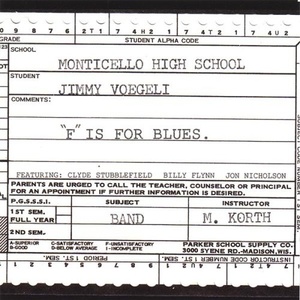 GRADE
STUDENT ALPHA CODE
SCHOOL
MONTICELLO HIGH SCHOOL
STUDENT
JIMMY VOEGELI
COMMENTS:
"F" IS FOR BLUES.
FEATURING: CLYDE STUBBLEFIELD BILLY FLYNN JON NICHOLSON
PARENTS ARE URGED TO CALL THE TEACHER, COUNSELOR OR PRINCIPAL
FOR AN APPOINTMENT IF FURTHER INFORMATION IS DESIRED.
P.G.S.S.S.I. SUBJECT INSTRUCTOR
1ST SEM.
FULL YEAR BAND M. KORTH
2ND SEM.
A-SUPERIOR C-SATISFACTORY F-UNSATISFACTORY PARKER SCHOOL SUPPLY CO.
B-GOOD D-BELOW AVERAGE I-INCOMPLETE 3000 SYENE RD.-MADISON, WIS.
PERIOD 1 ST. SEM.
INSTRUCTOR CODE NUMBER 1 ST. SEM.